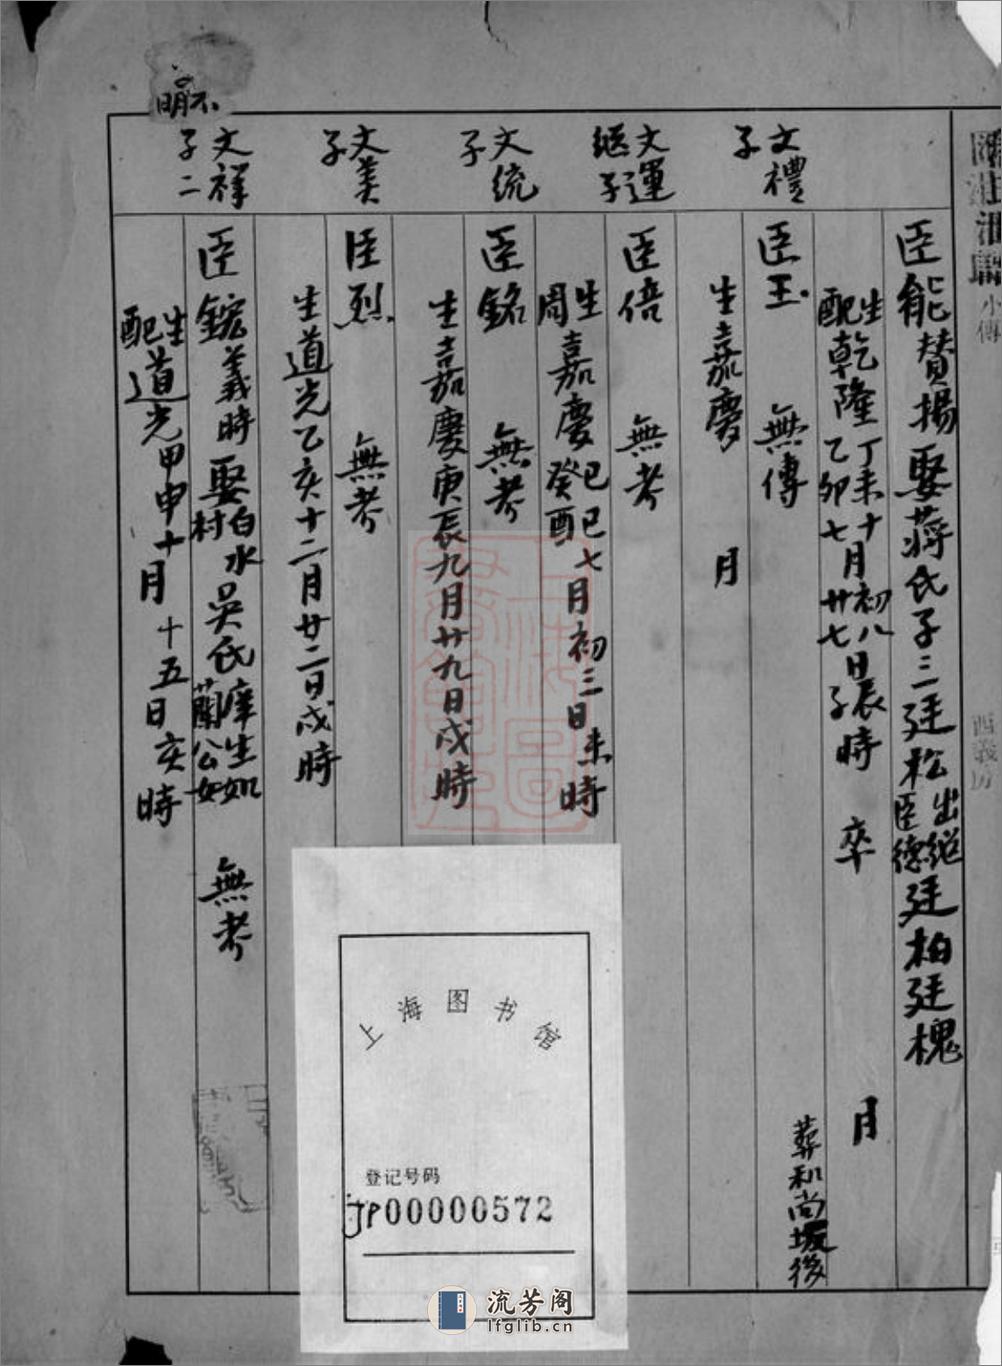 小傳
西義房
臣能贊揚娶蔣氏子三廷松出繼臣德廷柏廷槐
生乾隆丁未十月初八日辰時 卒 月
配 乙卯七 廿七 子時
葬和尚坡後
文禮子
臣玉 無傳
生嘉慶 月
文運繼子
臣倍 無考
生嘉慶己巳七月初三日未時
周 癸酉
文統子
臣銘 無考
生嘉慶庚辰九月廿九日戌時
文美子
臣烈 無考
生道光乙亥十二月廿二日戌時
文祥子二
臣鋐義時娶白水村吳氏庠生如蘭公女 無考
生道光甲申十月十五日亥時
配
不明
上海图书馆
登记号码
JP00000572
流芳阁
lfglib.cn